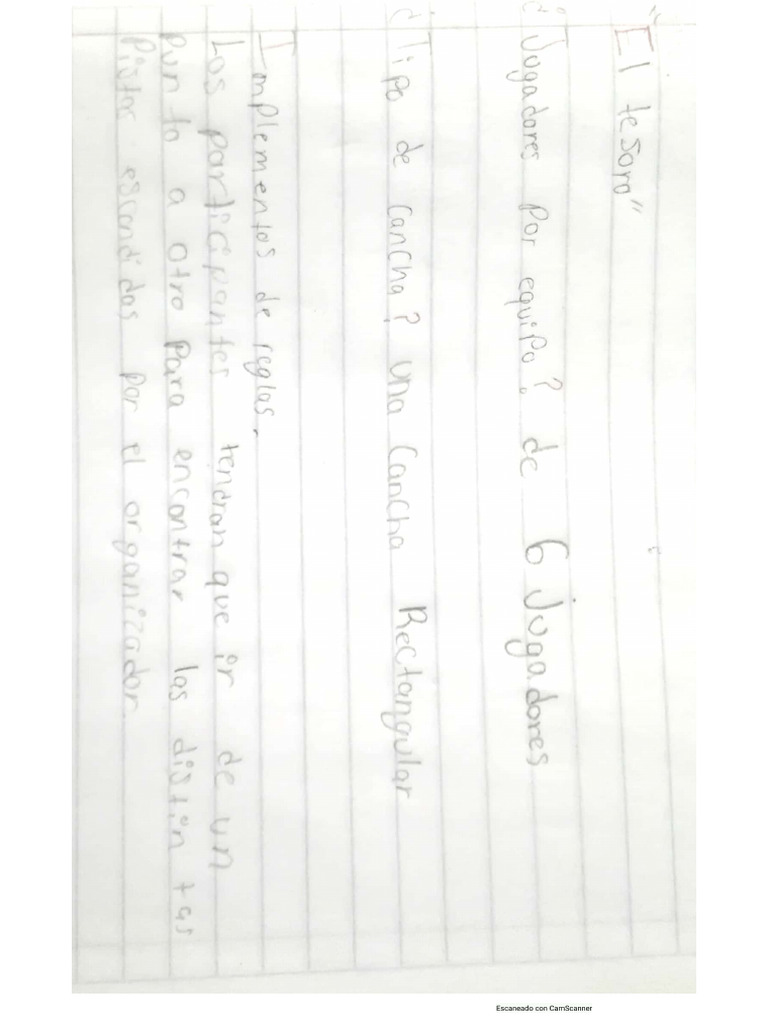 "El tesoro"
¿Jugadores por equipo? de 6 jugadores
¿Tipo de Cancha? una Cancha Rectangular
Implementos de reglas.
Los participantes tendran que ir de un
punto a otro para encontrar las distintas
Pistas escondidas por el organizador.
Escaneado con CamScanner